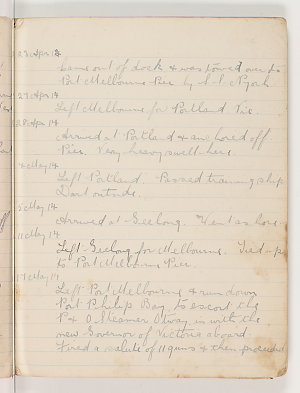 23 Apr 14
Came out of dock & was towed over to
Port Melbourne Pier by S.S. Nyora.
27 Apr 14
Left Melbourne for Portland Vic.
28 Apr 14
Arrived at Portland & anchored off
Pier. Very heavy swell here.
4 May 14
Left Portland. Passed training ship
Dart outside.
5 May 14
Arrived at Geelong. Went as
11 May 14
Left Geelong for Melbourne. Tied up
to Port Melbourne Pier.
17 May 14
Left Port Melbourne & ran down
Port Philip Bay to escort the
P & O Steamer Otway in with the
new Governor of Victoria aboard.
Fired a salute of 11 guns & then proceeded